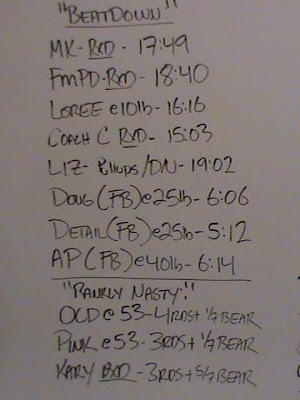 "BEATDOWN:"
MK-RXD - 17:49
FMPD-RXD- 18:40
LOREE @ 10lb- 16:16
COACH C RXD- 15:03
LIZ- /DN- 19:02
DOUG (FB)@25lb- 6:06
DETAIL (FB)@25lb- 5:12
AP (FB)@40lb- 6:14
"PANKLY NASTY:"
OLD @ 53-4RDS+ 1/7 BEAR
PINK @ 53- 3RDS+ 1/7 BEAR
KARY RXD -3RDS+5/7 BEAR